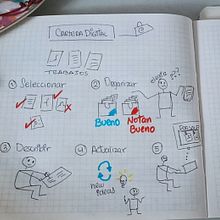 CARTERA DIGITAL
TRABAJOS
1 Seleccionar
2 Organizar
BUENO
NOTAN BUENO
3 Describir
4 Actualizar
new ideas
5